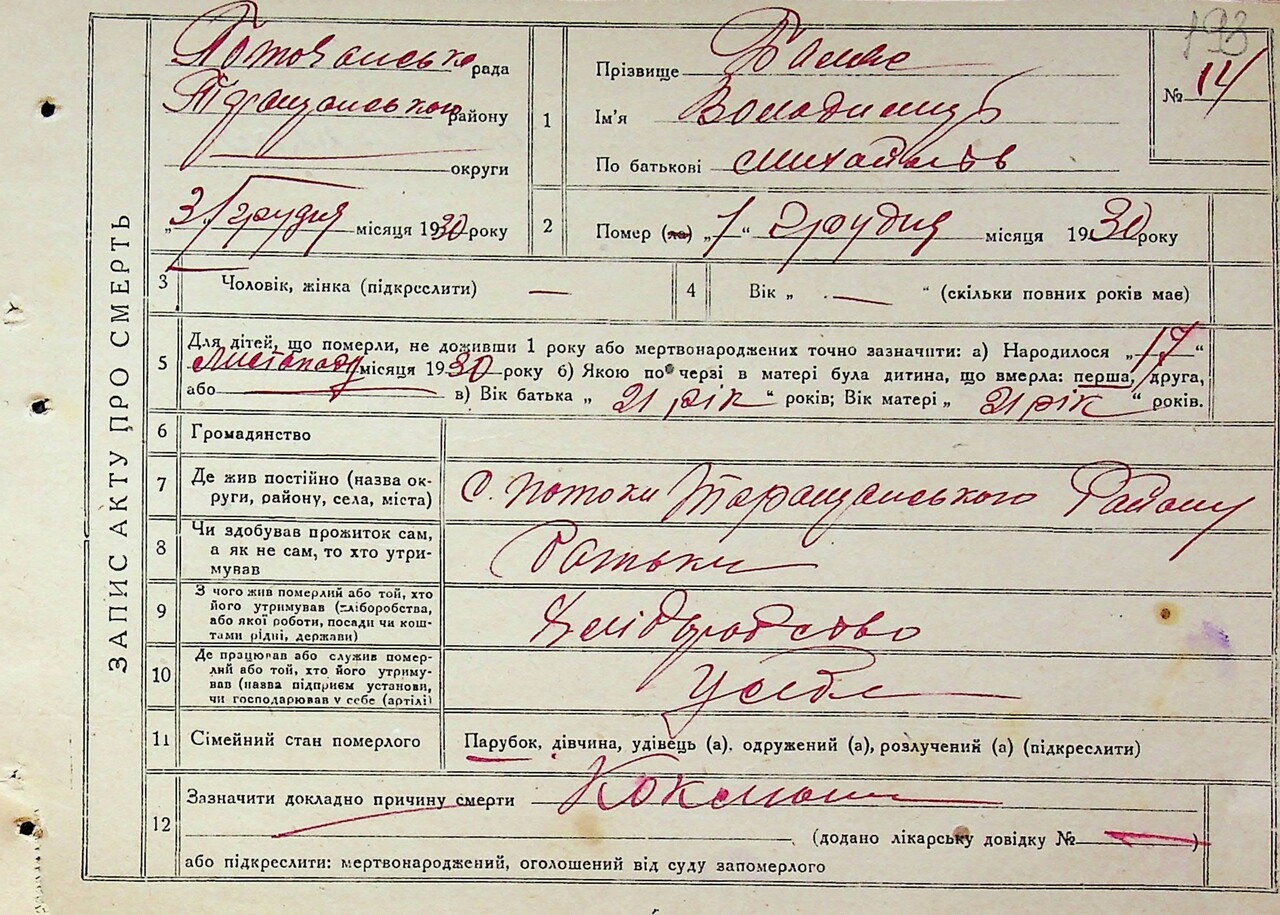 193
ЗАПИС АКТУ ПРО СМЕРТЬ
Поточанська рада
Таращанського району
округи
"3" грудня місяця 1930 року
1
Прізвище
Ім'я Володимир
По батькові Михайлов
№ 14
2
Помер (ла) "1" грудня місяця 1930 року
3 Чоловік, жінка (підкреслити) —
4 Вік „ — “ (скільки повних років має)
5
Для дітей, що померли, не доживши 1 року або мертвонароджених точно зазначити: а) Народилося „17“
Листопаду місяця 1930 року б) Якою по черзі в матері була дитина, що вмерла: перша, друга,
або — в) Вік батька „ 21 рік “ років; Вік матері „ 21 рік “ років.
6 Громадянство
7 Де жив постійно (назва ок-
руги, району, села, міста)
с. Потоки Таращанського Району
8 Чи здобував прожиток сам,
а як не сам, то хто утри-
мував
Батьки
9 З чого жив померлий або той, хто
його утримував (хліборобства,
або якої роботи, посади чи кош-
тами рідні, держави)
Хліборобство
10 Де працював або служив помер-
лий або той, хто його утриму-
вав (назва підприєм установи,
чи господарював у себе (артілі)
У себе
11 Сімейний стан померлого
Парубок, дівчина, удівець (а). одружений (а), розлучений (а) (підкреслити)
12
Зазначити докладно причину смерти
(додано лікарську довідку № —)
або підкреслити: мертвонароджений, оголошений від суду запомерлого